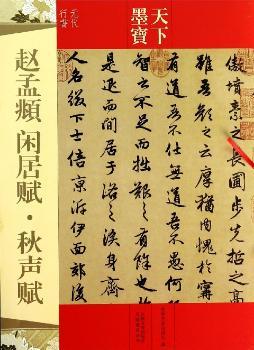 天下
墨寶
元代
行書
赵孟頫 闲居赋·秋声赋
傲墳素之長圃步先哲之高
雖吾顏之云厚猶內愧於甯
有道吾不仕無道吾不愚何
智之不足而拙艱之有餘也於
是退而閒居于洛之涘身齊
人名綴下士陪京泝伊面郊後